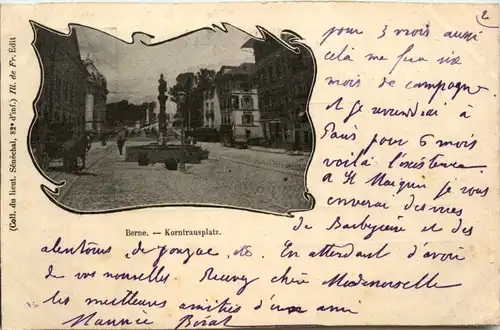 2
(Coll. du lieut. Sénéchal, 82e d'inf.) Ill. de Fr. Edit
Berne. — Korntrausplatz.
pour 3 mois aussi
cela me fera six
mois de campagne
et je reviendrai à
Paris pour 6 mois
voilà l'existence
à St Maigrin je vous
enverrai des vues
de Barbezieux et des
alentours, de Jonzac, etc. En attendant d'avoir
de vos nouvelles. Recevez chère Mademoiselle
les meilleures amitiés d'un ami
Maurice